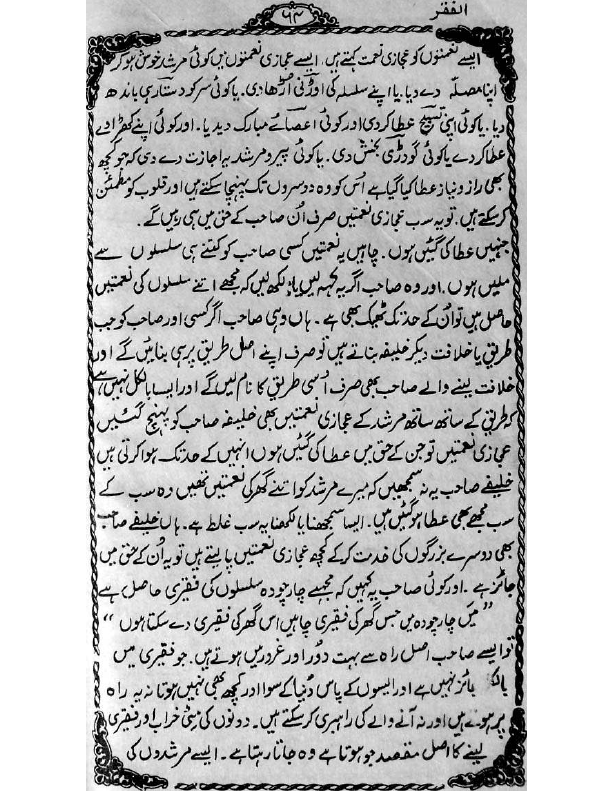 الفقر
۶۳
ایسے نعمتوں کو مجازی نعمت کہتے ہیں، ایسے مجازی نعمتوں میں کوئی مرشد خوش ہو کر
اپنا مصلّہ دے دیا۔ یا اپنے سلسلہ کی اوڑنی اُڑھا دی۔ یا کوئی سر کو دستار ہی باندھ
دیا۔ یا کوئی اپنی تسبیح عطا کر دی اور کوئی اعصائے مبارک دیدیا۔ اور کوئی اپنے کھڑاوے
عطا کر دے یا کوئی گودڑی بخش دی۔ یا کوئی پیر و مرشد یہ اجازت دے دی کہ جو کچھ
بھی راز و نیاز عطا کیا گیا ہے اُس کو وہ دوسروں تک پہنچا سکتے ہیں اور قلوب کو مطمئن
کر سکتے ہیں۔ تو یہ سب مجازی نعمتیں صرف اُن صاحب کے حق میں ہی رہیں گے۔
جنہیں عطا کی گئیں ہوں۔ چاہیں یہ نعمتیں کسی صاحب کو کتنے ہی سلسلوں سے
ملیں ہوں۔ اور وہ صاحب اگر یہ کہہ لیں یا لکھ لیں کہ مجھے اتنے سلسلوں کی نعمتیں
حاصل ہیں تو اُن کے حد تک ٹھیک بھی ہے۔ ہاں وہی صاحب اگر کسی اور صاحب کو جب
طریق یا خلافت دیکر خلیفہ بناتے ہیں تو صرف اپنے اصل طریق پر ہی بنائیں گے اور
خلافت لینے والے صاحب بھی صرف اُسی طریق کا نام لیں گے اور ایسا بالکل نہیں ہے
کہ طریق کے ساتھ ساتھ مرشد کے مجازی نعمتیں بھی خلیفہ صاحب کو پہنچ گئیں
مجازی نعمتیں تو جن کے حق میں عطا کی گئیں ہوں انہیں کے حد تک ہوا کرتی ہیں
خلیفے صاحب یہ نہ سمجھیں کہ میرے مرشد کو اتنے گھر کی نعمتیں تھیں وہ سب کے
سب مجھے بھی عطا ہو گئیں ہیں۔ ایسا سمجھنا یا لکھنا یہ سب غلط ہے۔ ہاں خلیفے صاحب
بھی دوسرے بزرگوں کی خدمت کر کے کچھ مجازی نعمتیں پا لیتے ہیں تو یہ اُن کے حق میں
جائز ہے۔ اور کوئی صاحب یہ کہیں کہ مجھے چار چودہ سلسلوں کی فقیری حاصل ہے
”میں چار چودہ میں جس گھر کی فقیری چاہیں اس گھر کی فقیری دے سکتا ہوں“
تو ایسے صاحب اصل راہ سے بہت دُور اور غرور میں ہوتے ہیں۔ جو فقیری میں
جائز نہیں ہے اور ایسوں کے پاس دُنیا کے سوا اور کچھ بھی نہیں ہوتا نہ یہ راہ
پر ہوتے ہیں اور نہ آنے والے کی راہبری کر سکتے ہیں۔ دونوں کی مٹی خراب اور فقیری
لینے کا اصل مقصد جو ہوتا ہے وہ جاتا رہتا ہے۔ ایسے مرشدوں کی